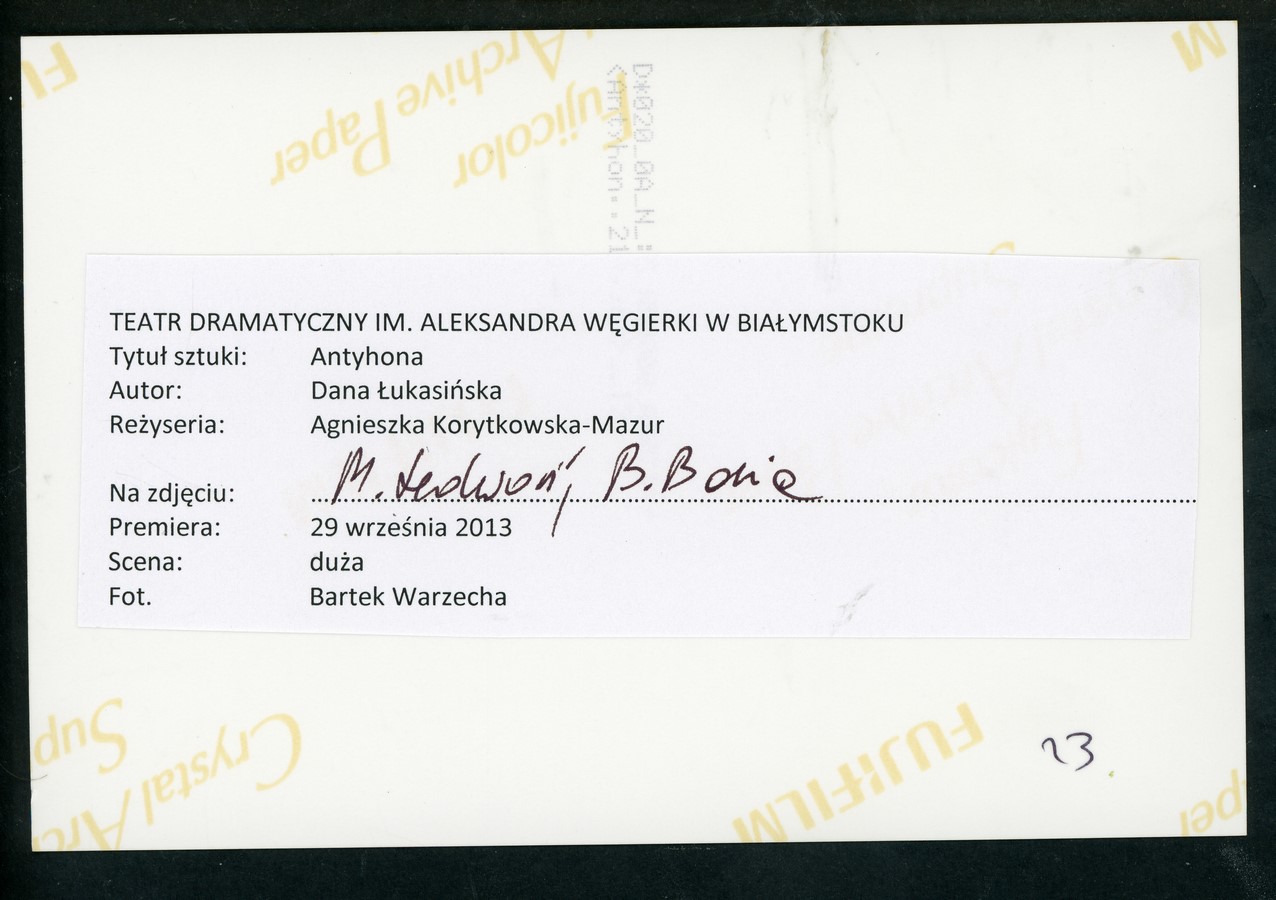 FU
Crystal Archive Paper
Fujicolor
M
D*020_0A_N_:
<Antyhon..21
TEATR DRAMATYCZNY IM. ALEKSANDRA WĘGIERKI W BIAŁYMSTOKU
Tytuł sztuki: Antyhona
Autor: Dana Łukasińska
Reżyseria: Agnieszka Korytkowska-Mazur
Na zdjęciu: M. Ledwoń, B. Bania
Premiera: 29 września 2013
Scena: duża
Fot. Bartek Warzecha
Sup
Crystal Arc
FUJIFILM
23
per